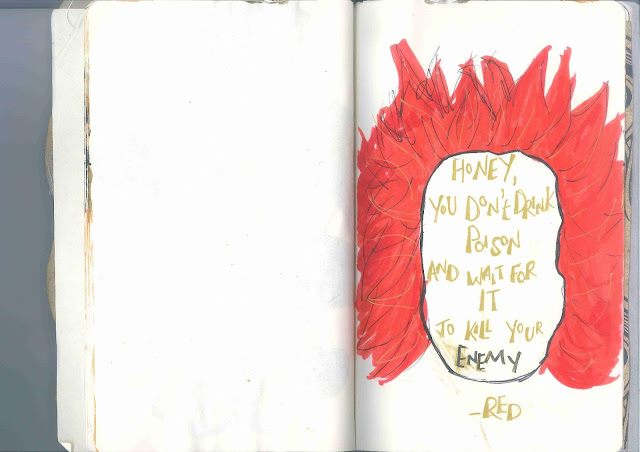 HONEY,
YOU DON'T DRINK
POISON
AND WAIT FOR
IT
TO KILL YOUR
ENEMY
-RED